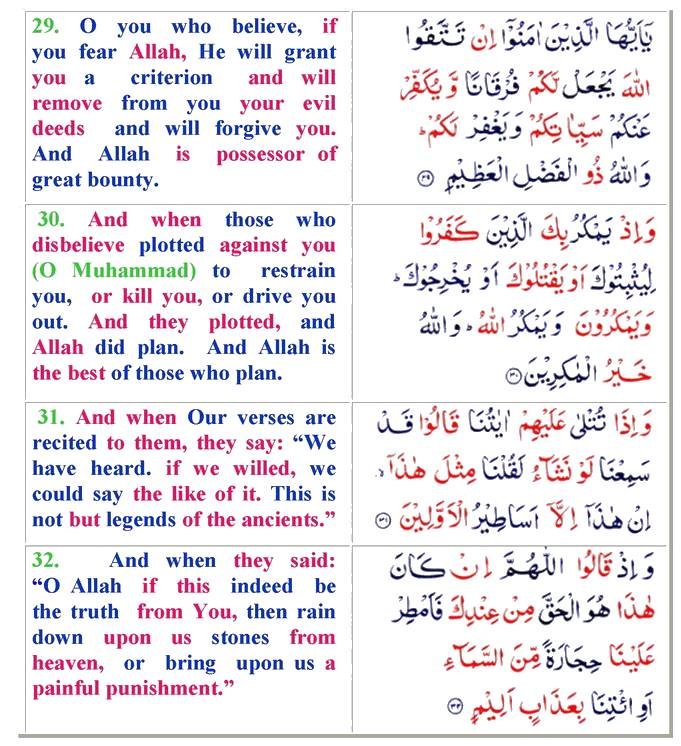 29. O you who believe, if
you fear Allah, He will grant
you a criterion and will
remove from you your evil
deeds and will forgive you.
And Allah is possessor of
great bounty.
يٰۤاَيُّهَا الَّذِيْنَ اٰمَنُوْۤا اِنْ تَتَّقُوا
اللّٰهَ يَجْعَلْ لَّكُمْ فُرْقَانًا وَّ يُكَفِّرْ
عَنْكُمْ سَيِّاٰتِكُمْ وَ يَغْفِرْ لَكُمْ ؕ
وَاللّٰهُ ذُو الْفَضْلِ الْعَظِيْمِ ۝۲۹
30. And when those who
disbelieve plotted against you
(O Muhammad) to restrain
you, or kill you, or drive you
out. And they plotted, and
Allah did plan. And Allah is
the best of those who plan.
وَ اِذْ يَمْكُرُ بِكَ الَّذِيْنَ كَفَرُوْا
لِيُثْبِتُوْكَ اَوْ يَقْتُلُوْكَ اَوْ يُخْرِجُوْكَ ؕ
وَيَمْكُرُوْنَ وَ يَمْكُرُ اللّٰهُ ؕ وَ اللّٰهُ
خَيْرُ الْمٰكِرِيْنَ ۝۳۰
31. And when Our verses are
recited to them, they say: “We
have heard. if we willed, we
could say the like of it. This is
not but legends of the ancients.”
وَ اِذَا تُتْلٰى عَلَيْهِمْ اٰيٰتُنَا قَالُوْا قَدْ
سَمِعْنَا لَوْ نَشَآءُ لَقُلْنَا مِثْلَ هٰذَاۤ ۙ
اِنْ هٰذَاۤ اِلَّاۤ اَسَاطِيْرُ الْاَوَّلِيْنَ ۝۳۱
32. And when they said:
“O Allah if this indeed be
the truth from You, then rain
down upon us stones from
heaven, or bring upon us a
painful punishment.”
وَ اِذْ قَالُوا اللّٰهُمَّ اِنْ كَانَ
هٰذَا هُوَ الْحَقَّ مِنْ عِنْدِكَ فَاَمْطِرْ
عَلَيْنَا حِجَارَةً مِّنَ السَّمَآءِ
اَوِ ائْتِنَا بِعَذَابٍ اَلِيْمٍ ۝۳۲